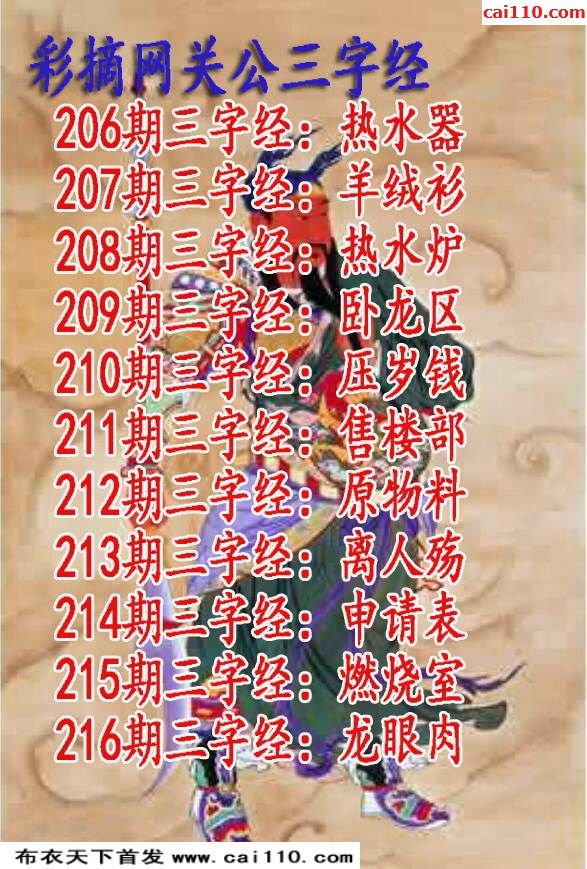 cai110.com
彩摘网关公三字经
206期三字经：热水器
207期三字经：羊绒衫
208期三字经：热水炉
209期三字经：卧龙区
210期三字经：压岁钱
211期三字经：售楼部
212期三字经：原物料
213期三字经：离人殇
214期三字经：申请表
215期三字经：燃烧室
216期三字经：龙眼肉
布衣天下首发 www.cai110.com